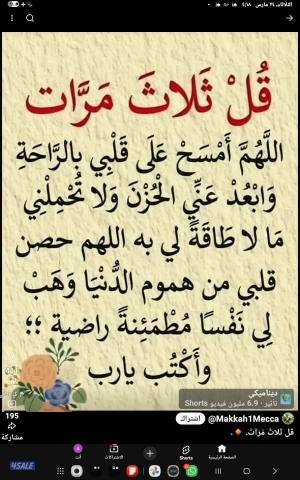 الثلاثاء، ٢٤ مارس ٤:١٨
قُلْ ثَلَاثَ مَرَّات
اللَّهُمَّ أَمْسَحْ عَلَى قَلْبِي بِالرَّاحَةِ
وَابْعُدْ عَنِّي الْحُزْنَ وَلَا تُحَمِلْنِي
مَا لَا طَاقَةً لِي بِهِ اللهم حصن
قلبي من هموم الدُّنْيَا وَهَبْ
لِي نَفْسًا مُطْمَئِنةً راضية ؛؛
وأَكْتُب يارب
ديناميكي
6.9 مليون فيديو Shorts
195
مشاركة
@Makkah1Mecca
اشتراك
قل ثلاث مَرَات.
الصفحة الرئيسية
Shorts
الاشتراكات
أنت
4SALE